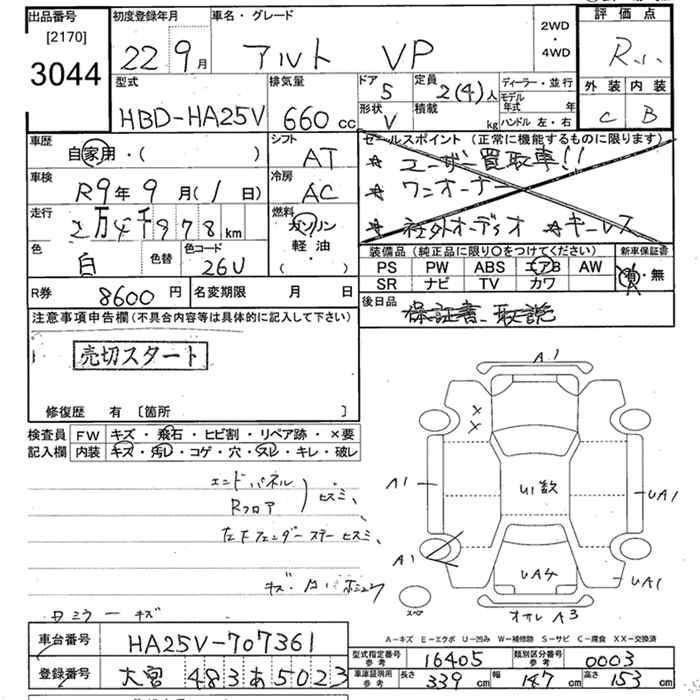 出品番号 初度登録年月 車名・グレード 2WD・4WD 評価点
[2170]
3044 22 9月 アルト VP R
型式 排気量 ドア 5 定員 2(4)人 ディーラー・並行 外装 内装
HBD-HA25V 660cc 形状 V 積載 kg モデル年式 年 ハンドル 左・右 C B
車歴 自家用・( ) シフト AT セールスポイント (正常に機能するものに限ります)
☆ ユーザー買取車!!
車検 R9年9月(1日) 冷房 AC ☆ ワンオーナー
走行 2万4千878km 燃料 ガソリン ☆ 社外オーディオ ☆ キーレス
色 白 色替 色コード 26U 軽油・( )
装備品 (純正品に限り〇をつけてください) 新車保証書
PS PW ABS エアB AW 有・無
SR ナビ TV カワ
R券 8600円 名変期限 月 日 後日品
保証書 取説
注意事項申告欄 (不具合内容等は具体的に記入して下さい)
売切スタート
修復歴 有 [箇所 ]
検査員記入欄 FW キズ・飛石・ヒビ割・リペア跡・×要
内装 キズ・汚レ・コゲ・穴・スレ・キレ・破レ
エンドパネル
Rフロア サビスミ、
左下フェンダーステー サビスミ、
A1
A1
U1数
UA1
A1
UA4
UA1
スペア
オサレ A3
Wミラーキズ
A-キズ E-エクボ U-凹み W-補修跡 S-サビ C-腐食 XX-交換済
車台番号 HA25V-707361
型式指定番号 参考 16405 類別区分番号 参考 0003
登録番号 大宮 483 あ 5023
車庫証明用 参考 長さ 339cm 幅 147cm 高さ 153cm